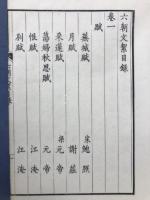 六朝文絜目錄
卷一
賦
蕪城賦 宋 鮑照
月賦 謝莊
采蓮賦 梁 元帝
蕩婦秋思賦 元帝
恨賦 江淹
別賦 江淹